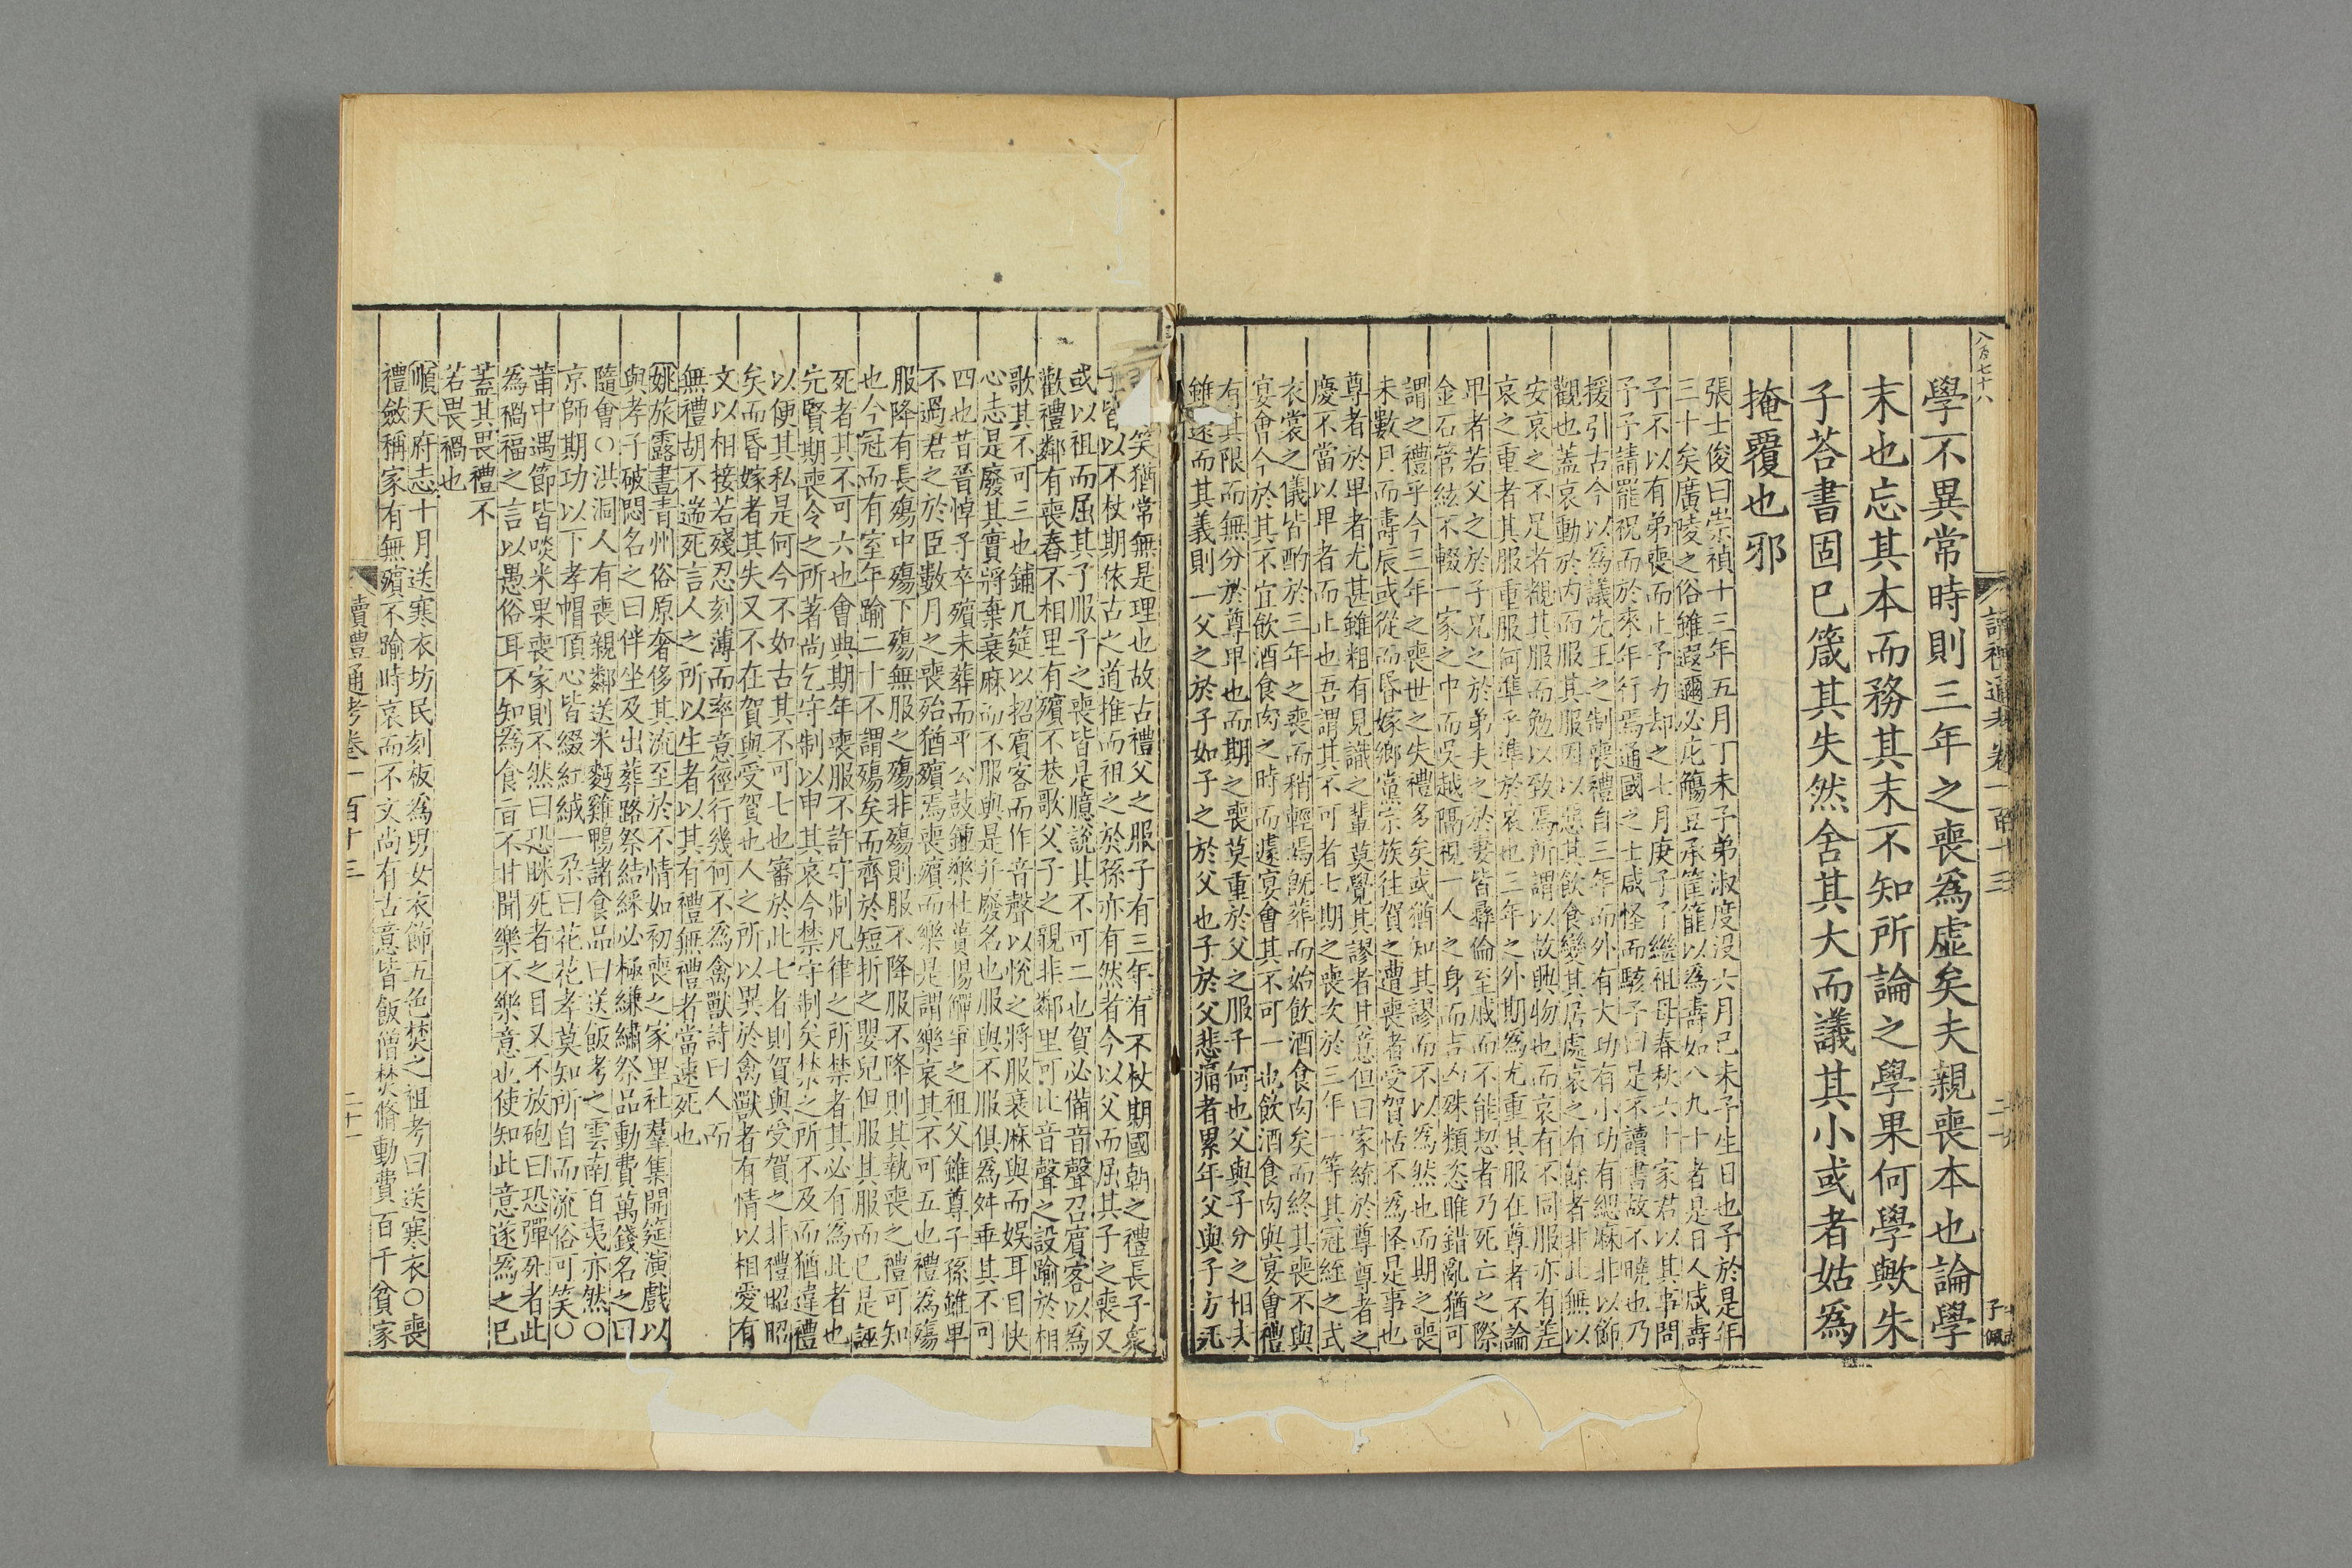 八百七十八
讀禮通考卷一百十三
二十
學不異常時則三年之喪爲虛矣夫親喪本也論學
末也忘其本而務其末不知所論之學果何學歟朱
子荅書固已箴其失然舍其大而議其小或者姑爲
掩覆也邪
張士俊曰崇禎十三年五月丁未子弟淑度沒六月己未子生日也予於是年
三十矣廣陵之俗雖遐邇必庀觴豆承筐篚以爲壽如八九十者是日人咸壽
予不以有弟喪而止予力却之七月庚子予繼祖母春秋六十家君以其事問
予予請罷祝而於來年行焉通國之士咸怪而駭予曰是不讀書故不曉也乃
援引古今以爲議先王之制喪禮自三年而外有大功有小功有緦麻非以飾
觀也蓋哀動於內而服其服因以惡其飲食變其居處哀之有餘者非此無以
安哀之不足者觀其服而勉以致焉所謂以故興物也而哀有不同服亦有差
哀之重者其服重服何準乎準於哀也三年之外期爲尤重其服在尊者不論
甲者若父之於子兄之於弟夫之於妻皆彝倫至戚而不能恝者乃死亡之際
金石管絃不輟一家之中而吳越隔視一人之身而吉凶殊類恣睢錯亂猶可
謂之禮乎今三年之喪世之失禮多矣或猶知其謬而不以爲然也而期之喪
未數月而壽辰或從而昏嫁鄉黨宗族往賀之遭喪者受賀恬不爲怪是事也
尊者於卑者尤甚雖粗有見識之輩莫覺其謬者其意但曰家統於尊尊者之
慶不當以卑者而止也吾謂其不可者七期之喪次於三年一等其冠絰之式
衣裳之儀皆酌於三年之喪而稍輕焉旣葬而始飲酒食肉矣而終其喪不與
宴會今於其不宜飲酒食肉之時而遽宴會其不可一也飲酒食肉與宴會禮
有其限而無分於尊卑也而期之喪莫重於父之服子何也父與子分之相去
雖遠而其義則一父之於子如子之於父也子於父悲痛者累年父與子方
笑猶常無是理也故古禮父之服子有三年有不杖期國朝之禮長子衆
子皆以不杖期依古之道推而祖之於孫亦有然者今以父而屈其子之喪又
或以祖而屈其子服子之喪皆是臆說其不可二也賀必備音聲召賓客以爲
歡禮鄰有喪舂不相里有殯不巷歌父子之親非鄰里可比音聲之設踰於相
歌其不可三也鋪几筵以招賓客而作音聲以悅之將服衰麻與而娛耳目快
心志是廢其實將棄衰麻而不服與是并廢名也服與不服俱爲舛乖其不可
四也昔晉悼子卒殯未葬而平公鼓鐘樂杜蕢揚觶爭之祖父雖尊子孫雖卑
不過君之於臣數月之喪殆猶殯焉喪殯而樂是謂樂哀其不可五也禮爲殤
服降有長殤中殤下殤無服之殤非殤則服不降服不降則其執喪之禮可知
也今冠而有室年踰二十不謂殤矣而齊於短折之嬰兒但服其服而已是誣
死者其不可六也會典期年喪服不許守制凡律之所禁者其必有爲此者也
先賢期喪令之所著尚乞守制以申其哀今禁守制矣禁之所不及而猶違禮
以便其私是何今不如古其不可七也審於此七者則賀與受賀之非禮昭昭
矣而昏嫁者其失又不在賀與受賀也人之所以異於禽獸者有情以相愛有
文以相接若殘忍刻薄而率意徑行幾何不爲禽獸詩曰人而
無禮胡不遄死言人之所以生者以其有禮無禮者當速死也
姚旅露書青州俗原奢侈其流至於不情如初喪之家里社羣集開筵演戲以
與孝子破悶名之曰伴坐及出葬路祭結綵必極縑繡祭品動費萬錢名之曰
隨會○洪洞人有喪親鄰送米麪雞鴨諸食品曰送飯考之雲南百夷亦然○
京師期功以下孝帽頂心皆綴紅絨一朶曰花花孝莫知所自而流俗可笑○
莆中遇節皆啖米果喪家則不然曰恐眯死者之目又不放砲曰恐彈死者此
爲禍福之言以愚俗耳不知爲食旨不甘聞樂不樂意也使知此意遂爲之已
蓋其畏禮不
若畏禍也
順天府志十月送寒衣坊民刻板爲男女衣飾五色焚之祖考曰送寒衣○喪
禮斂稱家有無殯不踰時哀而不文尚有古意皆飯僧焚脩動費百千貧家
讀禮通考卷一百十三
二十一